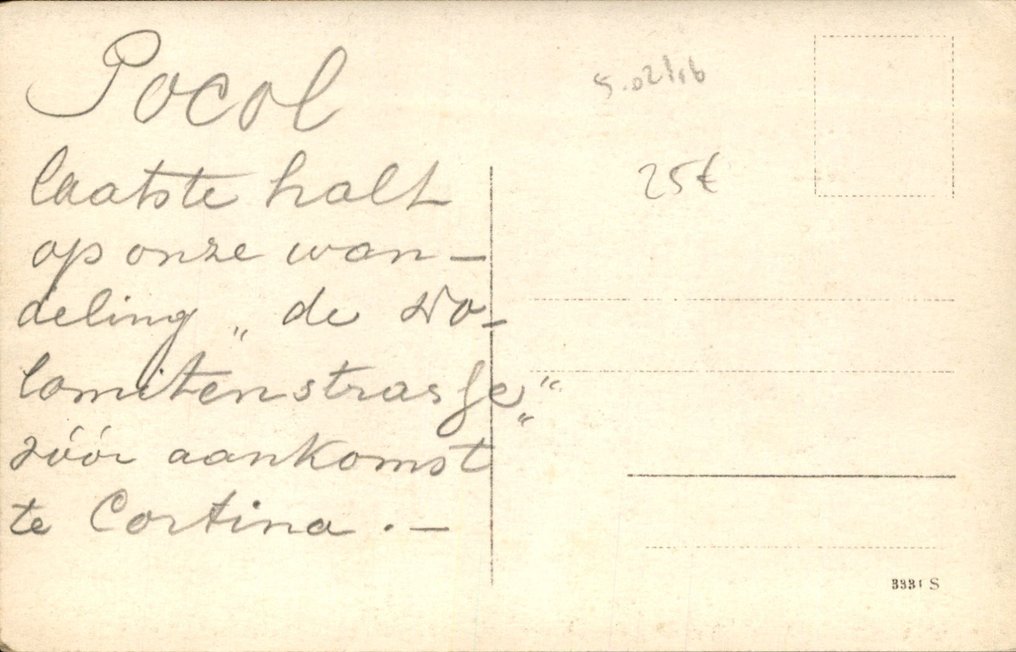 Pocol
laatste halt
op onze wan-
deling „de Do-
lomitenstrasse"
vóór aankomst
te Cortina.-
25€
3331 S